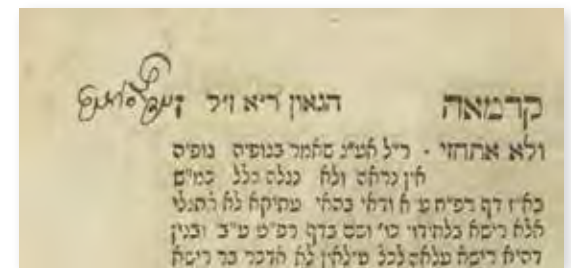 קדמאה הגאון רי״א זי״ל
ולא אתחזי · ר״ל אע״ג שאמר בנופיה נופיה
אין נראה ולא נגלה כלל כמ״ש
בא״ז דף רפ״ח ע״א ודאי בהאי עתיקא לא אתגלי
אלא רישא בלחודוי כו׳ ושם בדף רפ״ט ע״ב ובגין
דהיא רישא עלאה לכל עילאין לא אדכר בר רישא